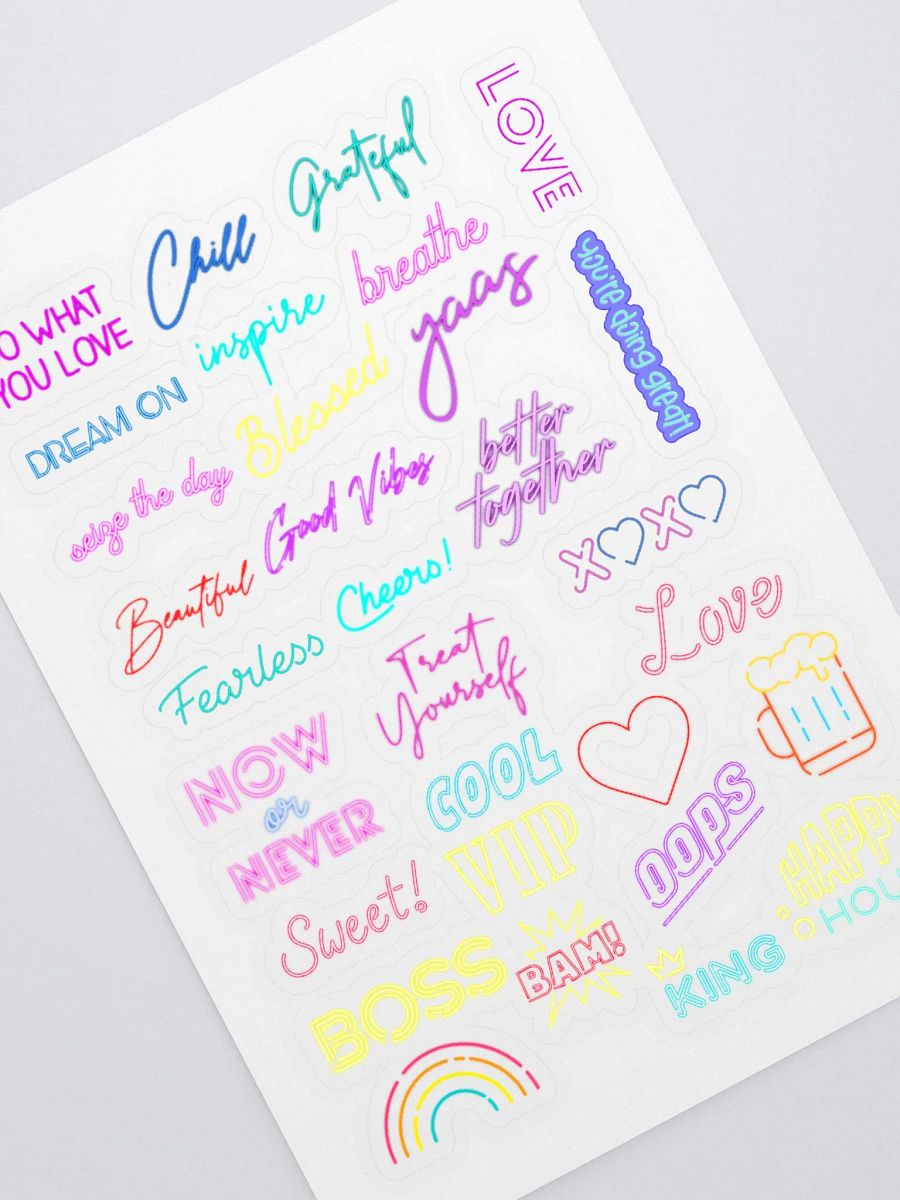 LOVE
Grateful
Chill
breathe
O WHAT
YOU LOVE
inspire
yaas
you're doing great!
DREAM ON
Blessed
better
together
seize the day
Good Vibes
XOXO
Beautiful
Cheers!
Love
Fearless
Treat
Yourself
NOW
or
NEVER
COOL
VIP
OOPS
HAPPY
HOU
Sweet!
BOSS
BAM!
KING